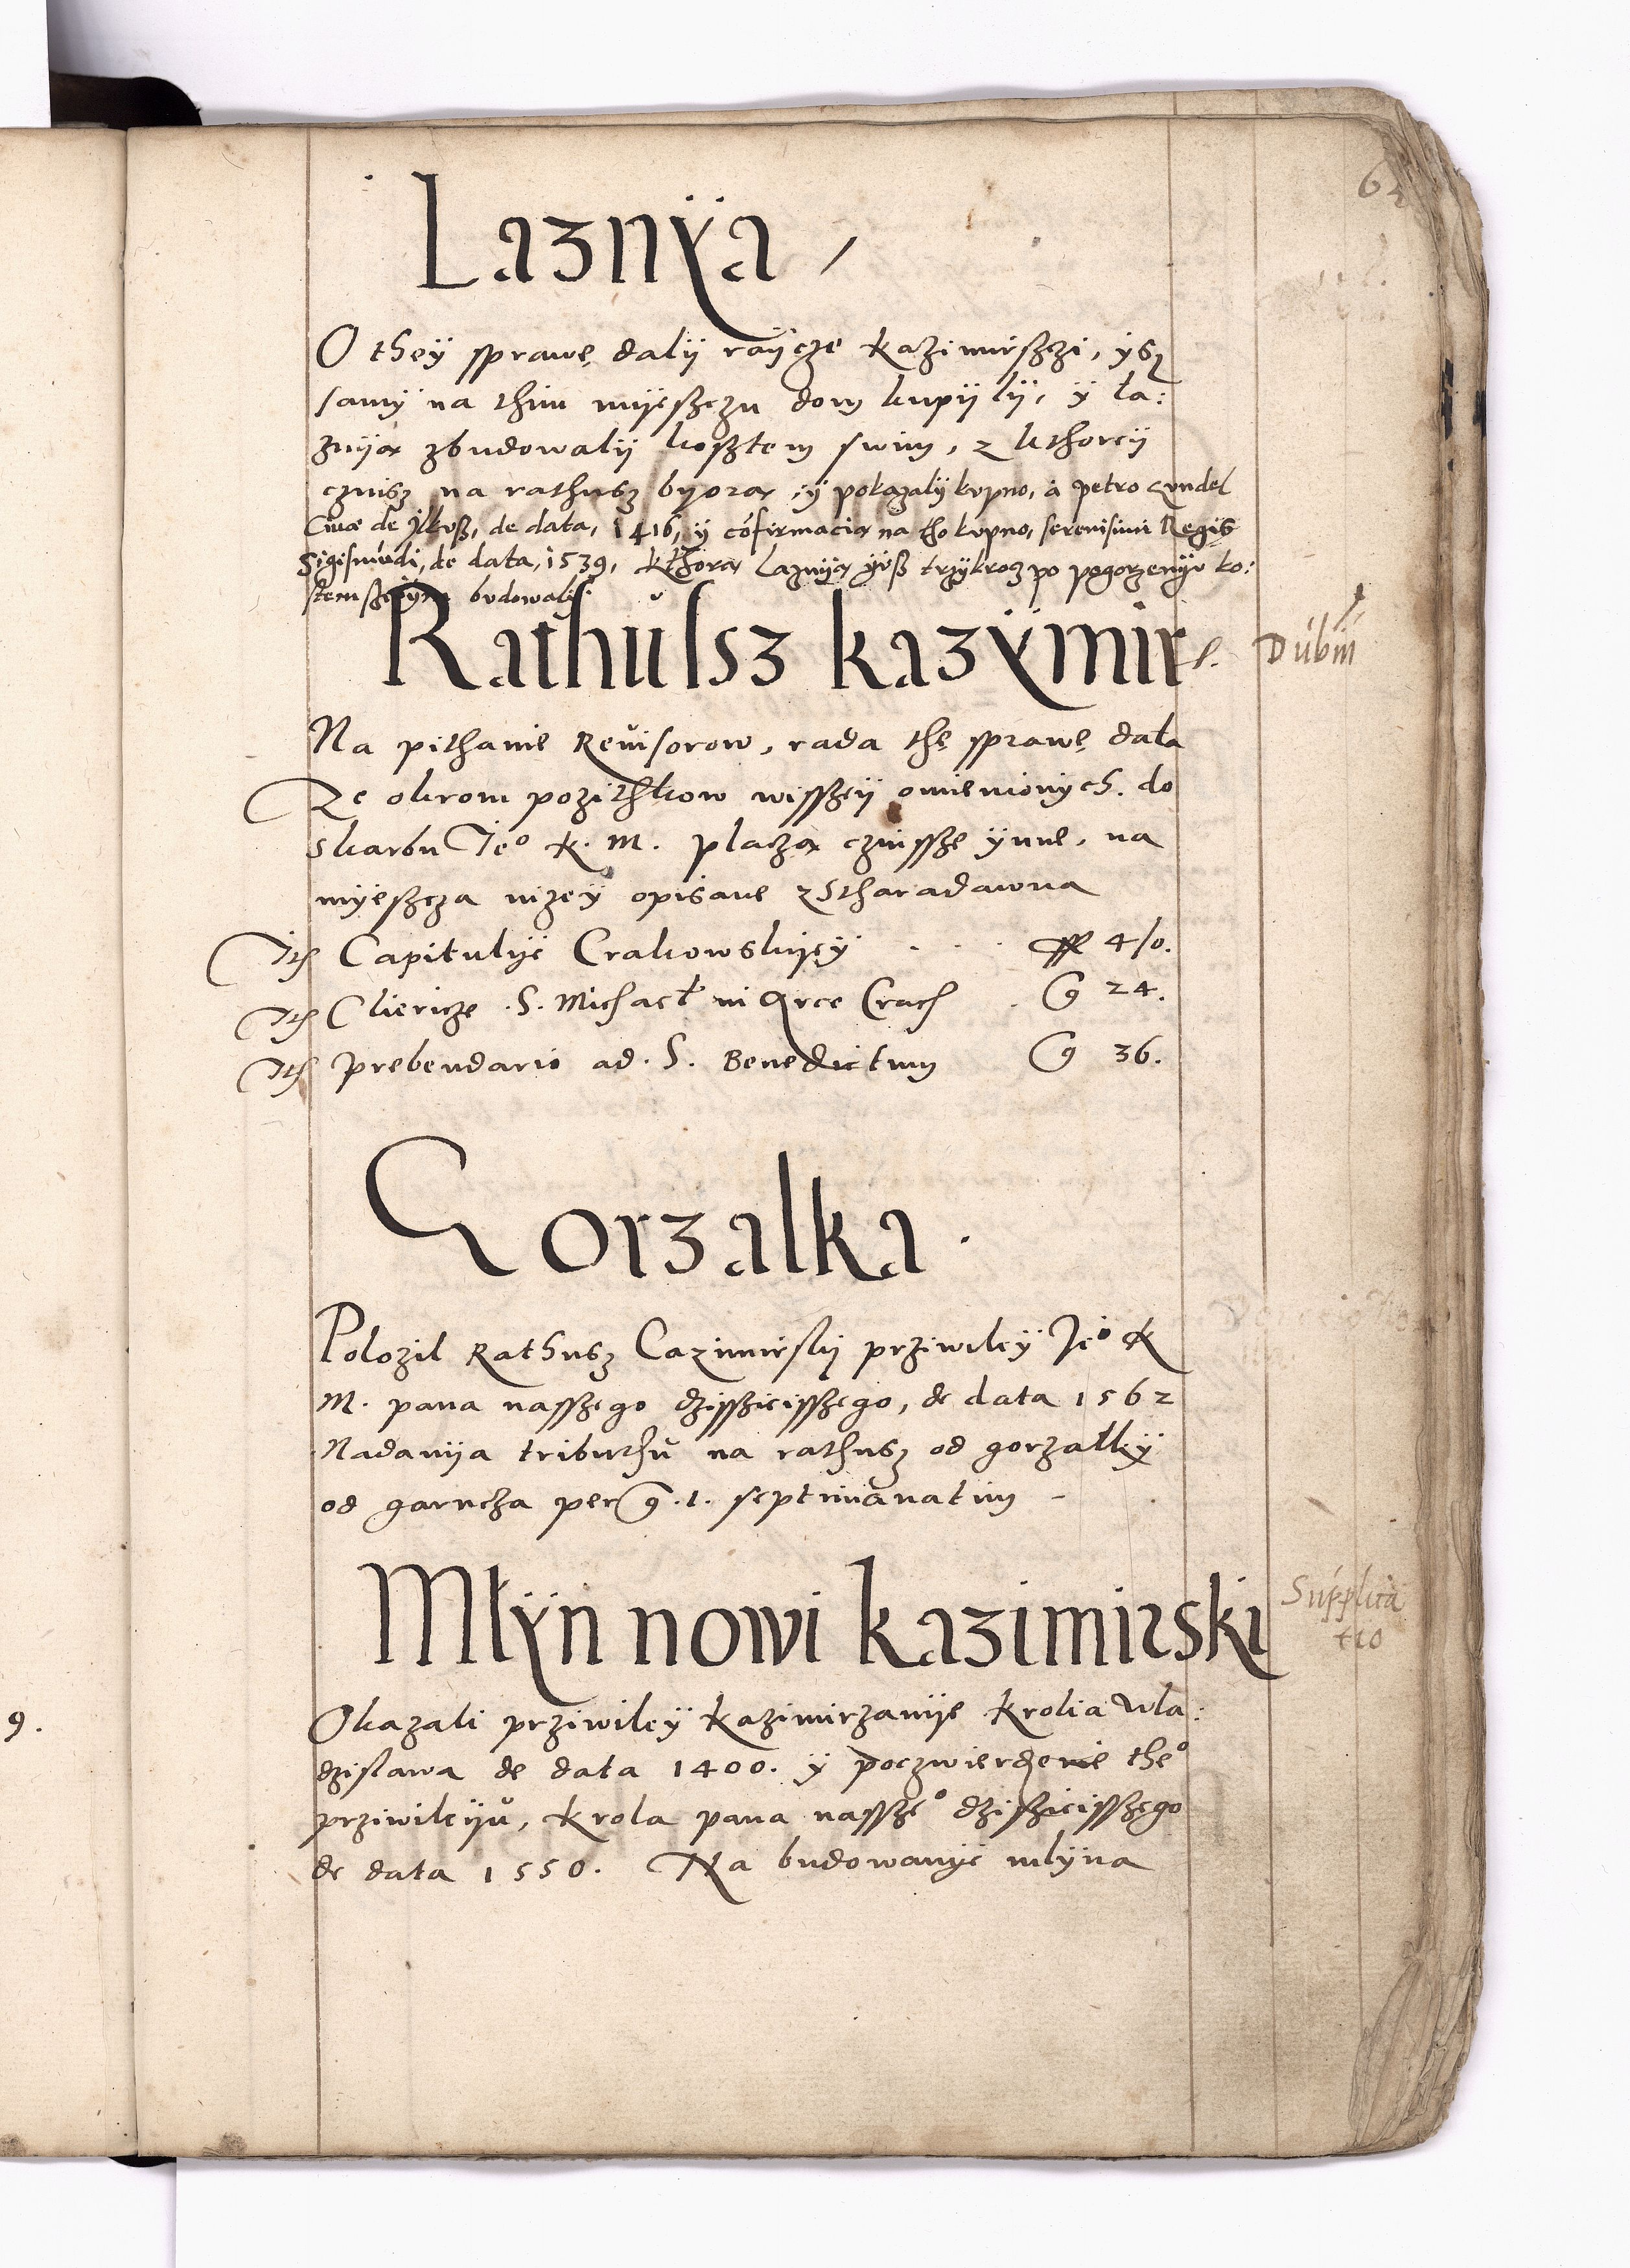 64
Laznÿa /
O theÿ sprawę dalÿ raÿcze Kazimirszzi, ÿsz
samÿ na thim mÿeszczu dom kupÿlÿ, ÿ ła:
znÿą zbudowalÿ kosztem swim, z kthoreÿ
czinsz na rathusz byorą, ÿ pokazalÿ kupno, a petro czudel
Ciue de Jlkusz, de data, 1416, ÿ cōfirmacią na tho kupno, serenisimi Regis
Sigismūdi, de data, 1539, Kthorą Laznÿą ÿusz trzÿkrocz po pogorzenÿu ko:
sztem budowalÿ
Rathusz kazÿmirs.
Dubiū
Na pithanie Reuisorow, rada thę sprawę dała
Ze okrom pozithkow wisszeÿ omienionych. do
skarbu Jeº K. M. placzą czinssze ÿnne, na
mÿeszcza nizeÿ opisane z stharadawna
Capitulÿe Crakowskÿeÿ . . . 4/0.
Clericze S. Michaeł in Arce Crach . G 24.
prebendario ad. S. Benedictum G 36.
Gorzalka .
Polozil Rathusz Cazimirskÿ prziwileÿ Jeº K
M. pana nasszego dzisszieisszego, de data 1562
Nadanÿa tributhu na rathusz od gorzałkÿ
od garncza per G .1. septimanatim -
Młÿn nowi kazimirski
Supplica
tio
Okazali prziwileÿ Kazimirzanÿe Krolia Wla:
dzislawa de data 1400. ÿ poczwierdzenie theº
prziwileÿu, Krola pana nasszeº dziszieisszego
de data 1550. Na budowanÿe młÿna
9.